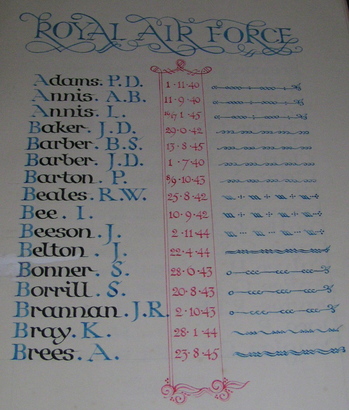 ROYAL AIR FORCE
Adams. P.D. 1·11·40
Annis. A.B. 11·9·40
Annis. L. 1·45
Baker. J.D. 20·0·42
Barber. B.S. 13·8·45
Barber. J.D. 1·7·40
Barton. P. 9·10·43
Beales. R.W. 25·8·42
Bee. I. 10·9·42
Beeson. J. 2·11·44
Belton. J. 22·4·44
Bonner. S. 28·6·43
Borrill. S. 20·8·43
Brannan. J.R. 2·10·43
Bray. K. 28·1·44
Brees. A. 23·8·45